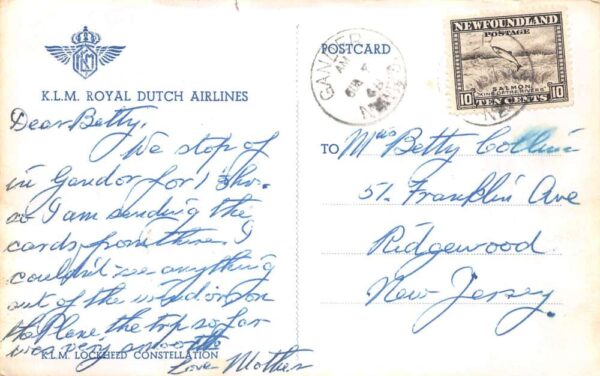 KLM
K.L.M. ROYAL DUTCH AIRLINES
Dear Betty.
We stop of
in Gandor for 1 hr.
so I am sending the
cards from there. I
couldn't see anything
out of the window on
the Plane, the trip so far
was very smooth
Love Mother
K.L.M. LOCKHEED CONSTELLATION
POSTCARD
GANDER
AM
4
48
NFLD
NEWFOUNDLAND
POSTAGE
SALMON
KING OF THE RIVERS
10 TEN CENTS 10
TO Mrs Betty Collins
51. Franklin Ave
Ridgewood
New-Jersey.